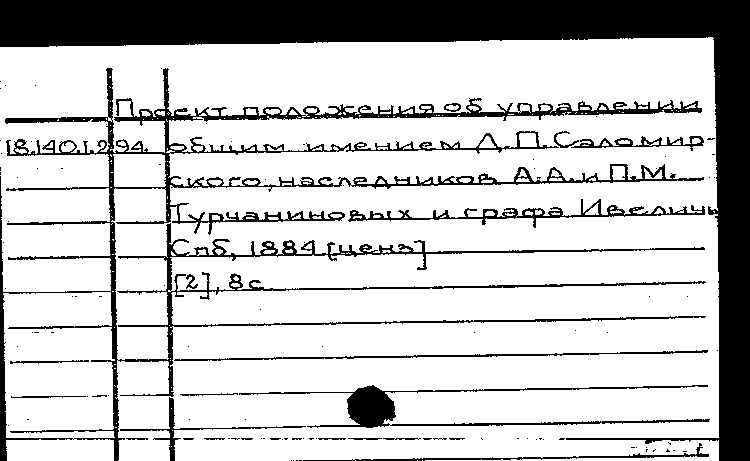 Проект положения об управлении
18.140.1.294. общим имением Д.П.Саломир-
ского, наследников А.А. и П.М.
Турчаниновых и графа Ивелич
Спб, 1884 [ценз]
[2], 8с